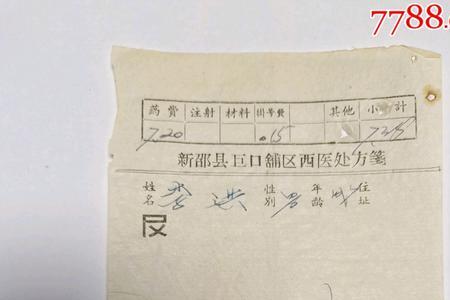 7788.
药费 注射 材料 挂号费 其他 小計
7.20 .15 7.35
新邵县巨口舖区西医处方箋
姓名 李 洪 性别 男 年龄 成 住址
R